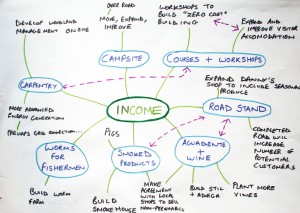 DEVELOP WOODLAND
MANAGEMENT ON SITE
OVER ROAD
MOVE, EXPAND,
IMPROVE
WORKSHOPS TO
BUILD "ZERO COST"
BUILDING
EXPAND AND
IMPROVE VISITOR
ACCOMODATION
CAMPSITE
COURSES + WORKSHOPS
CARPENTRY
EXPAND DANNY'S
SHOP TO INCLUDE SEASONAL
PRODUCE
INCOME
ROAD STAND
MORE ADVANCED
ENERGY GENERATION
PERHAPS GRID CONNECTION...
PIGS
COMPLETED
ROAD WILL
INCREASE
NUMBER OF
POTENTIAL
CUSTOMERS
WORMS
FOR
FISHERMEN
SMOKED
PRODUCTS
AGUADENTE
+
WINE
BUILD
WORM
FARM
BUILD
SMOKEHOUSE
MAKE
AGREEMENT
WITH LOCAL
SHOPS TO SELL
NON-PERISHABLES
BUILD STILL
+ ADEGA
PLANT MORE
VINES